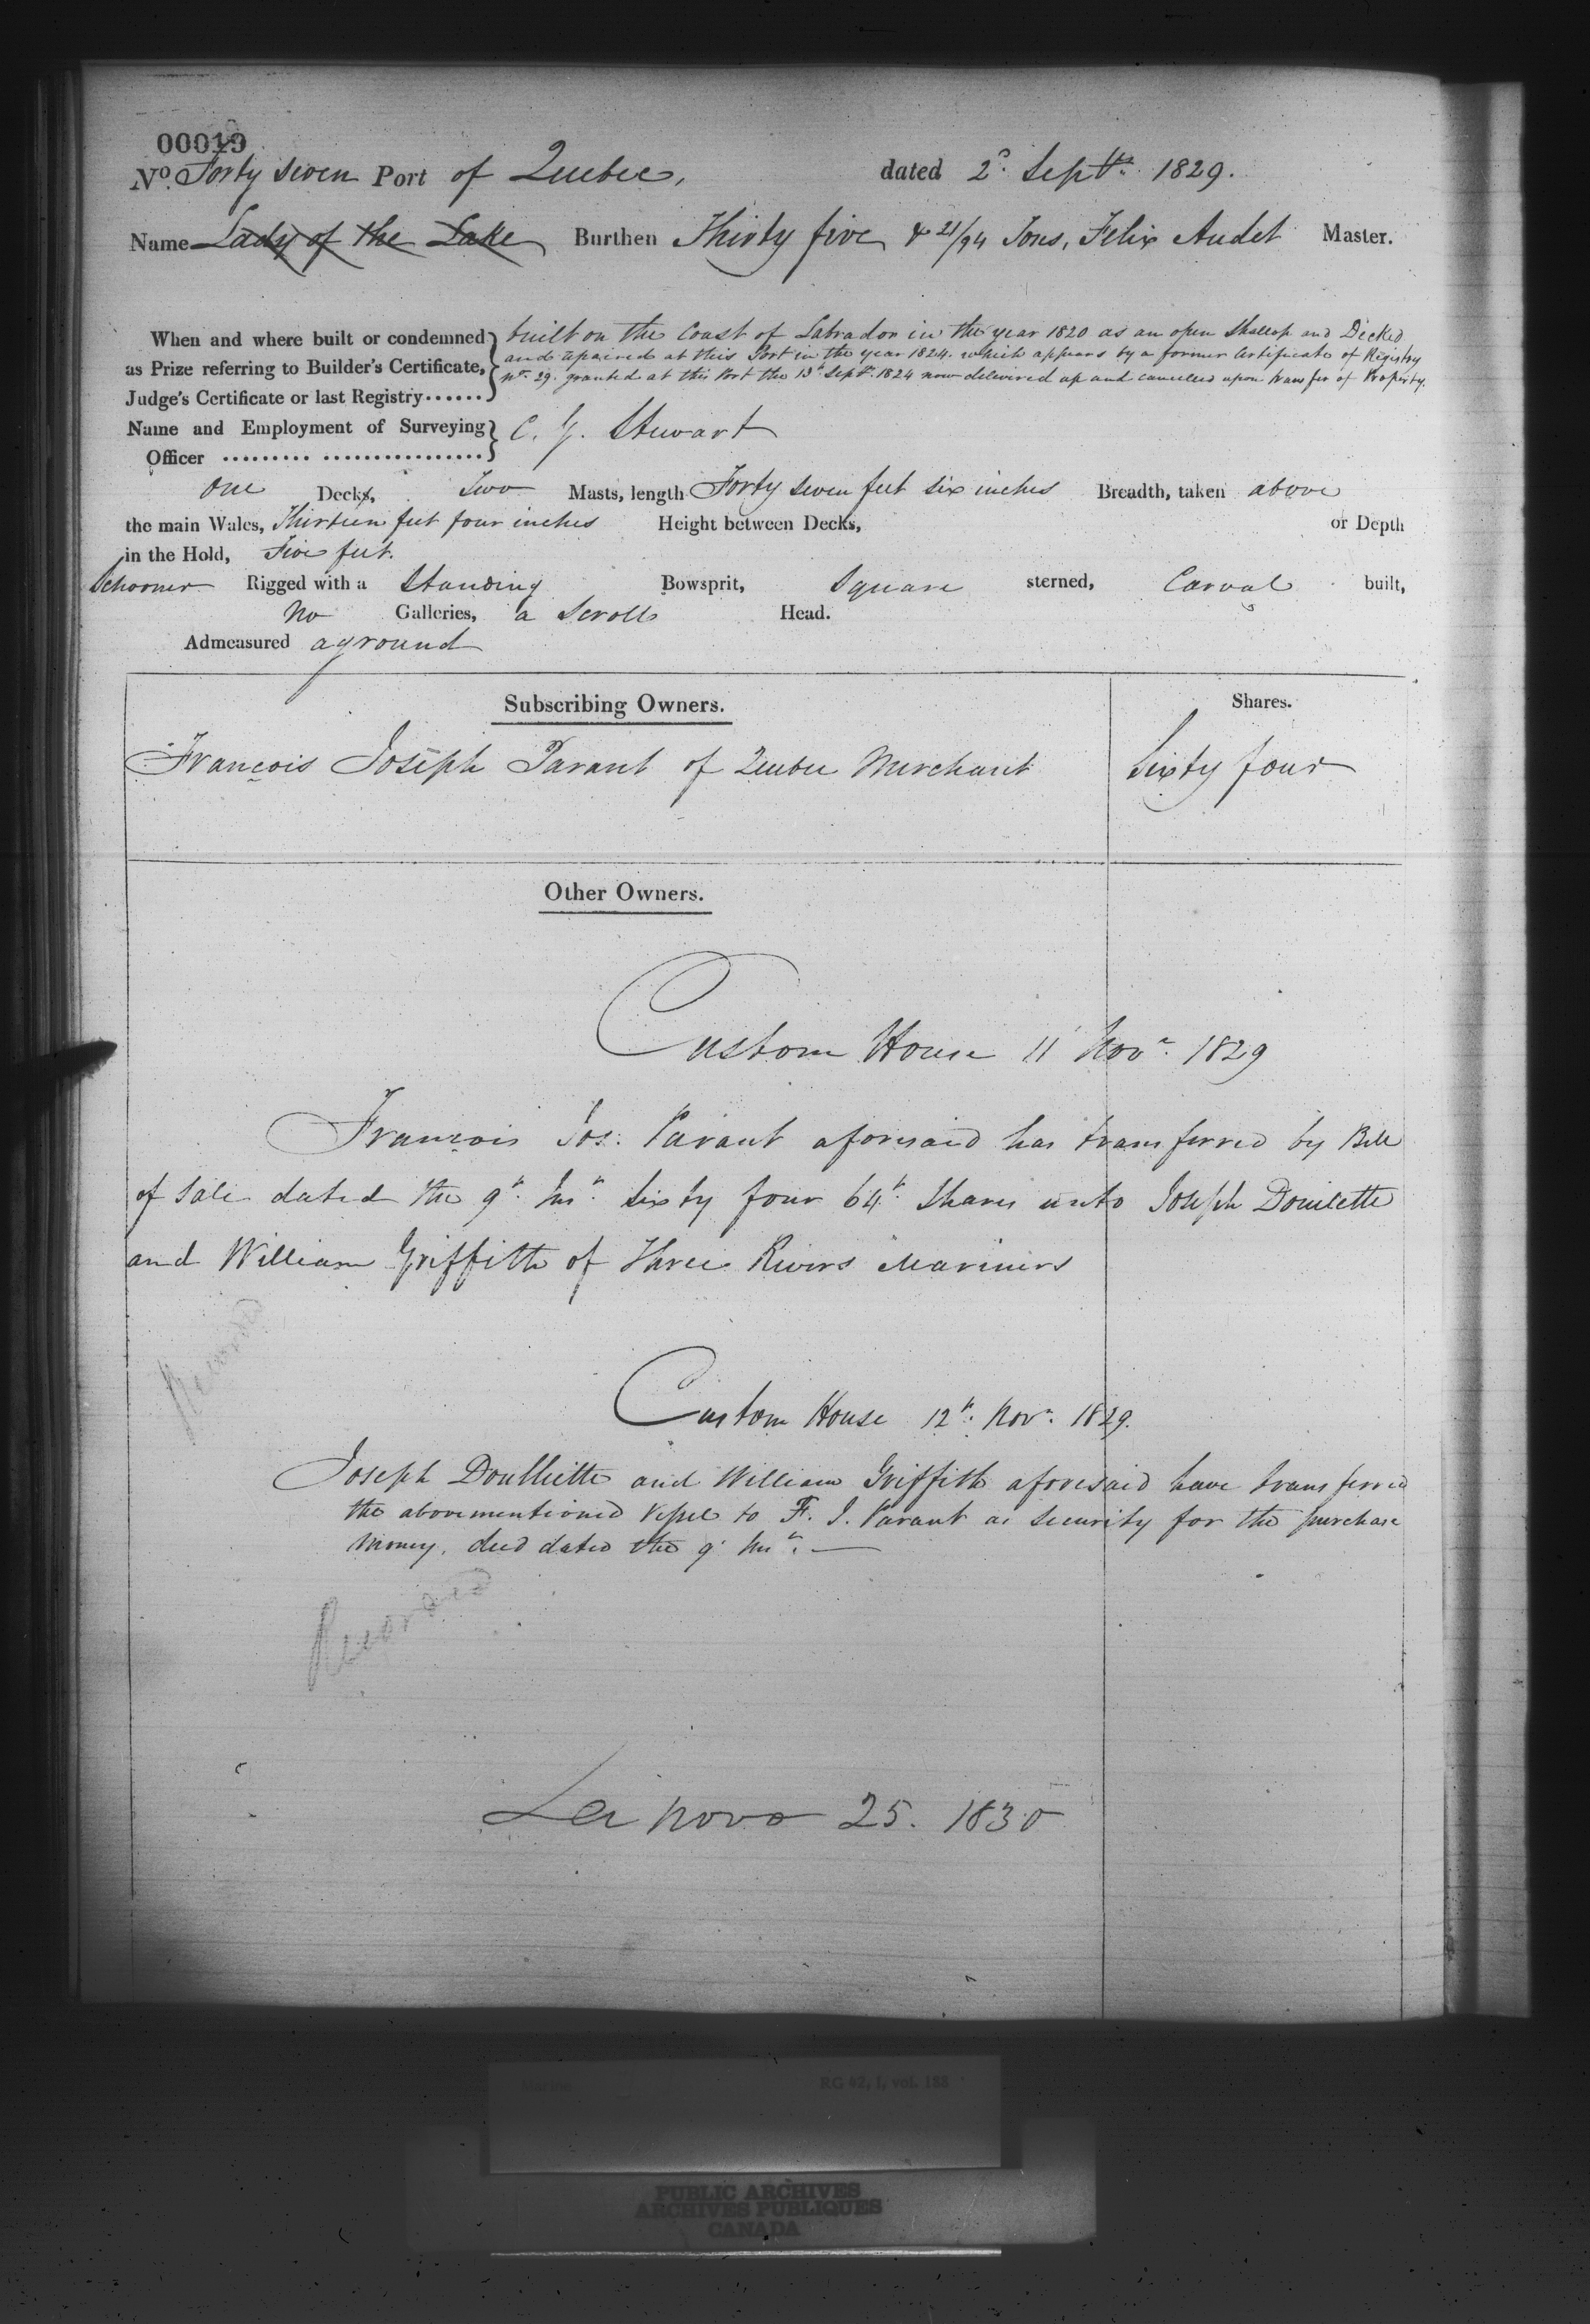 00019
No. Forty seven Port of Quebec, dated 2d. Septr. 1829.
Name Lady of the Lake Burthen Thirty five & 21/94 Tons, Felix Audet Master.
When and where built or condemned as Prize referring to Builder's Certificate, Judge's Certificate or last Registry......
built on the Coast of Labrador in the year 1820 as an open Shallop and Decked
and repaired at this Port in the year 1824. which appears by a former Certificate of Registry
No. 29. granted at this Port the 13th Septr. 1824 now delivered up and cancelled upon transfer of Property.
Name and Employment of Surveying Officer ......... ................ C. G. Stewart
One Decks, Two Masts, length Forty seven feet six inches Breadth, taken above
the main Wales, Thirteen feet four inches Height between Decks, or Depth
in the Hold, Five feet.
Schooner Rigged with a Standing Bowsprit, Square sterned, Carvel built,
No Galleries, a Scroll Head.
Admeasured aground
Subscribing Owners. Shares.
François Joseph Parant of Quebec Merchant Sixty four
Other Owners.
Custom House 11 Novr. 1829
François Jos. Parant aforesaid has transferred by Bill
of Sale dated the 9th. Inst. Sixty four 64th. Shares unto Joseph Doucette
and William Griffith of Three Rivers Mariners
Custom House 12th. Novr. 1829.
Joseph and William Griffith aforesaid have transferred
the abovementioned Vessel to F. J. Parant as security for the purchase
money, deed dated the 9th Inst. —
De novo 25. 1830
RG 42, I, vol. 188
PUBLIC ARCHIVES
ARCHIVES PUBLIQUES
CANADA